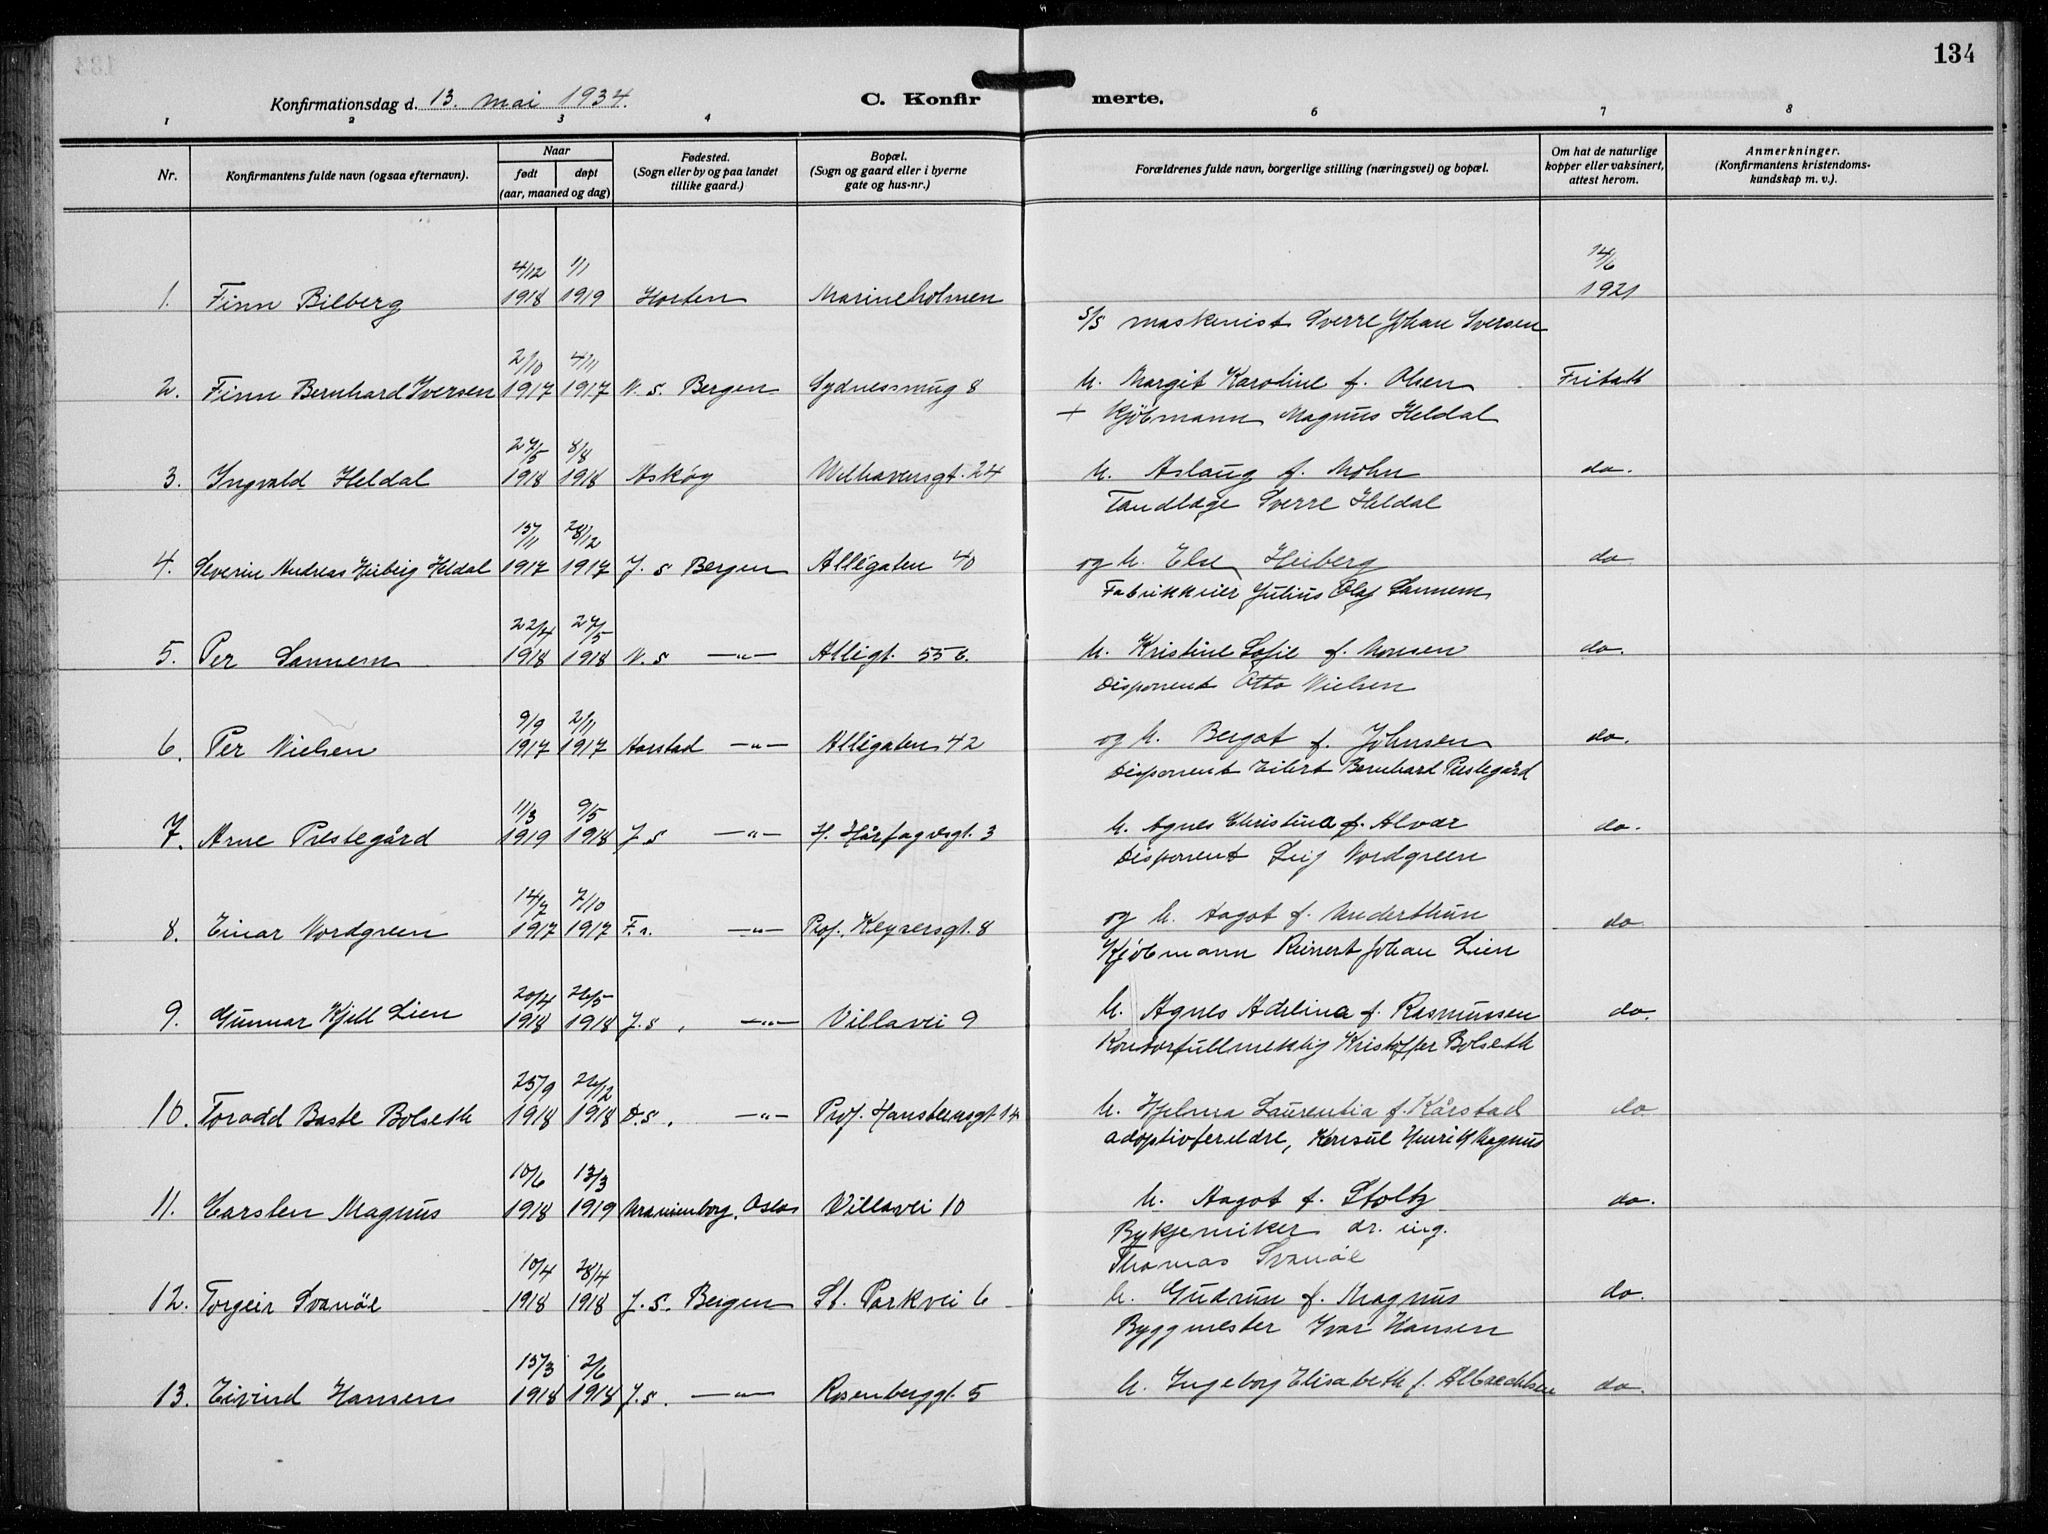 134
Konfirmationsdag d. 13. mai 1934.
C. Konfir merte.
1 2 3 4 6 7 8
Nr.
Konfirmantens fulde navn (ogsaa efternavn).
Naar
født døpt
(aar, maaned og dag)
Fødested.
(Sogn eller by og paa landet
tillike gaard.)
Bopæl.
(Sogn og gaard eller i byerne
gate og hus-nr.)
Forældrenes fulde navn, borgerlige stilling (næringsvei) og bopæl.
Om hat de naturlige
kopper eller vaksinert,
attest herom.
Anmerkninger.
(Konfirmantens kristendoms-
kundskap m. v.).
4/12 1/1 14/6
1. Finn Bilberg 1918 1919 Horten Marineholmen 1921
S/S maskinist Sverre Johan Iversen
2/10 4/11
2. Finn Bernhard Iversen 1917 1917 N. S. Bergen Sydnessmug 8 h. Margit Karoline f. Olsen Fritatt
+ Kjøbmann Magnus Heldal
27/5 8/8
3. Ingvald Heldal 1918 1918 Askøy Welhavensgt. 24 h. Aslaug f. Mohn do.
Tandlæge Sverre Heldal
13/11 28/12
4. Severin Andreas Heiberg Heldal 1917 1917 J. S Bergen Allégaten 40 og h. Else Heiberg do
Fabrikkeier Julius Olaf Sannem
22/4 27/5
5. Per Sannem 1918 1918 N. S —"— Allégt. 55 b. h. Kristine Sofie f. Monsen do.
Disponent Otto Nielsen
9/9 2/11
6. Per Nielsen 1917 1917 Aarstad —"— Allégaten 42 og h. Bergot f. Johnsen do.
Disponent Eilert Bernhard Prestegård
11/3 9/5
7. Arne Prestegård 1919 1918 J. S —"— H. Hårfagresgt. 3 h. Agnes Christina f. Alvær do.
Disponent Leif Nordgreen
14/7 7/10
8. Einar Nordgreen 1917 1917 F. s. —"— Prof. Keysersgt. 8 og h. Aagot f. Underthun do
Kjøbmann Reinert Johan Lien
20/4 26/5
9. Gunnar Kjell Lien 1918 1918 J. S. —"— Villavei 9 h. Agnes Adelina f. Rasmussen do.
Kontorfullmektig Kristoffer Bolseth
25/9 26/12
10. Toradd Baste Bolseth 1918 1918 D. S. —"— Prof. Hansteensgt 14 h. Hjelma Laurentia f. Kårstad do
adoptivforeldre, Konsul Henrik Magnus
10/6 13/3
11. Carsten Magnus 1918 1919 Uranienborg, Oslo Villavei 10 h. Aagot f. Stoltz do.
Bykjemiker dr. ing.
Thomas Svanöe
10/4 28/4
12. Torgeir Svanöe 1918 1918 J. S. Bergen St. Parkvei 6 h. Gudrun f. Magnus do.
Byggmester Ivar Hansen
15/3 2/6
13. Eivind Hansen 1918 1918 J. s. —"— Rosenberggt. 5 h. Ingeborg Elisabeth f. Albrechtsen do.